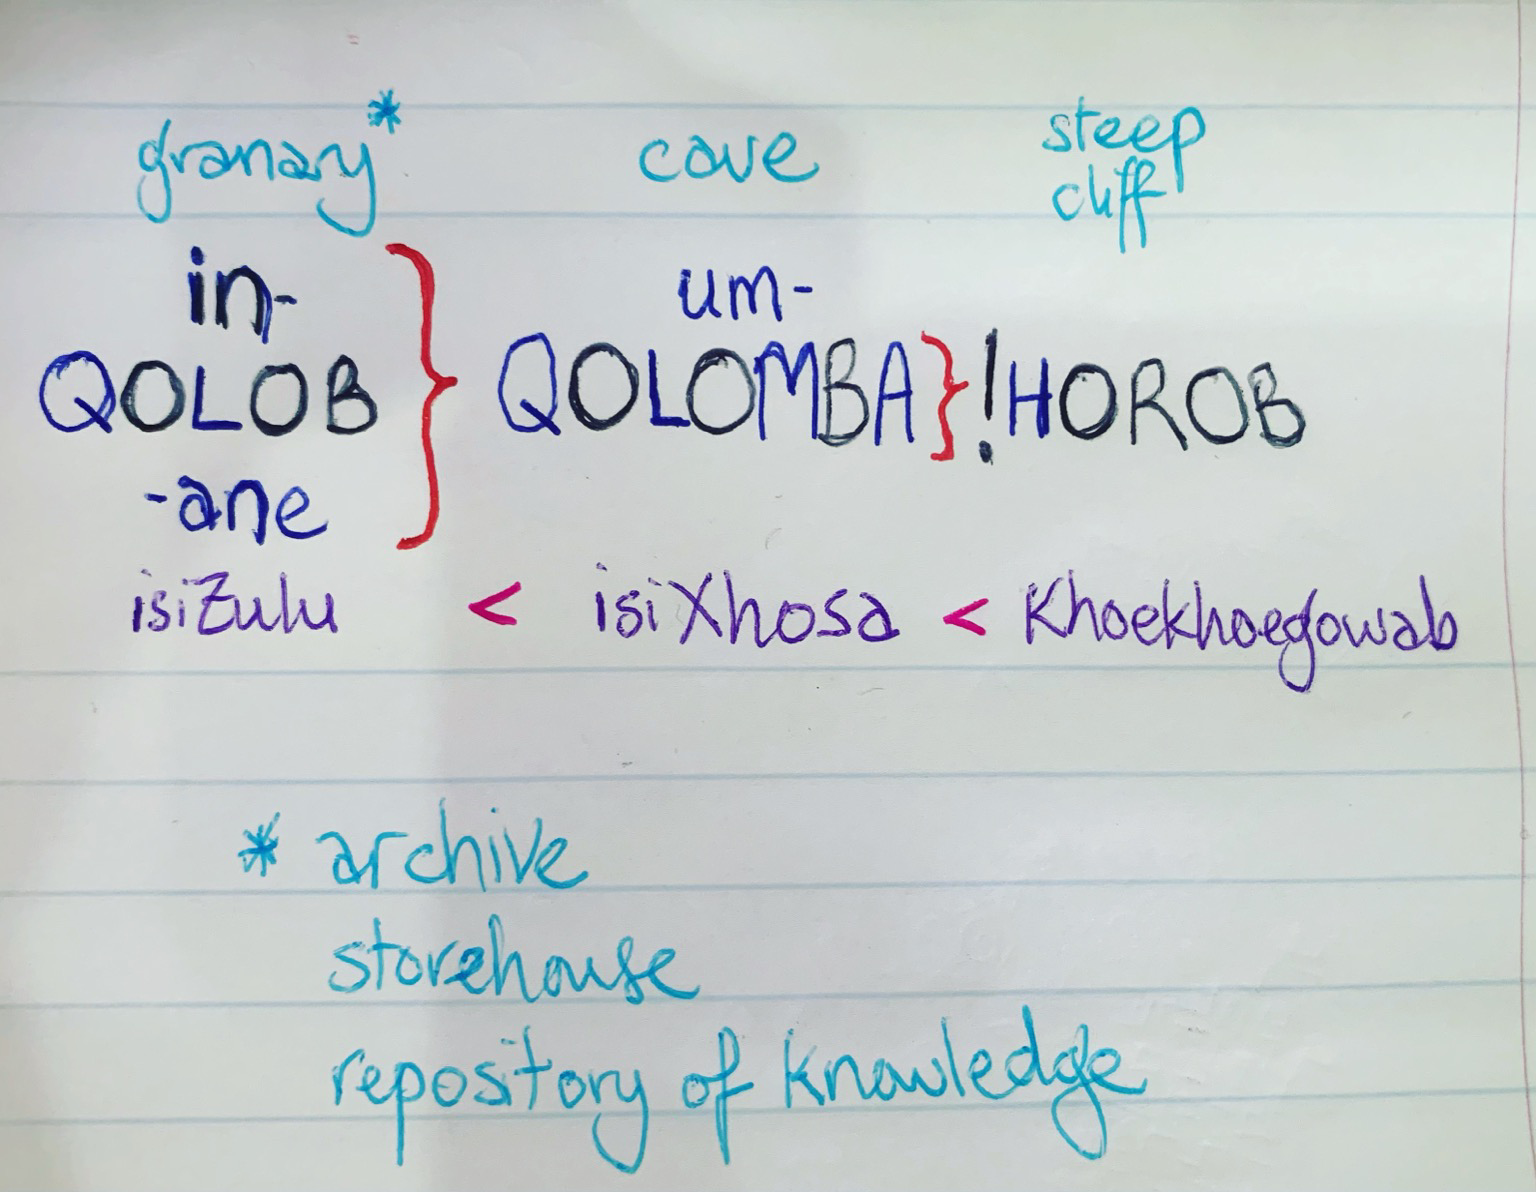 granary* cave steep
cliff
in- um-
QOLOB } QOLOMBA } !HOROB
-ane
isiZulu < isiXhosa < Khoekhoegowab
* archive
storehouse
repository of knowledge